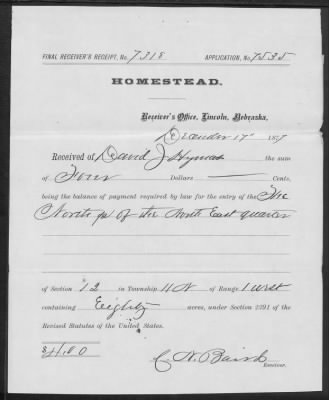 FINAL RECEIVER'S RECEIPT, No. 7318 APPLICATION, No. 7535
HOMESTEAD.
Receiver's Office, Lincoln, Nebraska,
December 17" 1877
Received of David J Hyman the sum
of Four Dollars Cents,
being the balance of payment required by law for the entry of the The
North ½ of the North East quarter
of Section 12 in Township 11 N of Range 1 west
containing Eighty acres, under Section 2291 of the
Revised Statutes of the United States.
$4.00
C. N. Baird
Receiver.